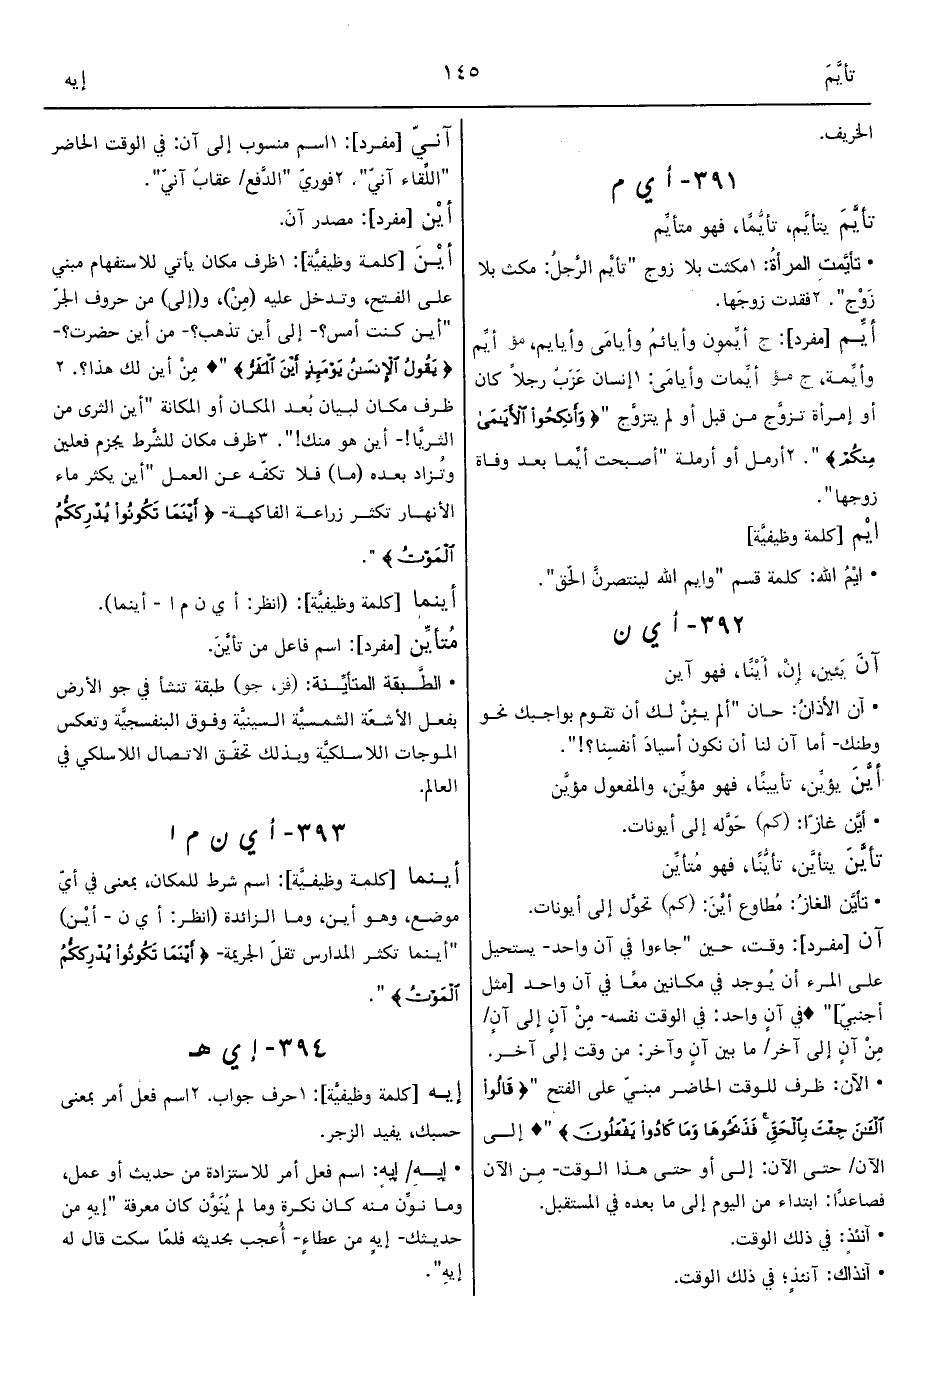 تأيَّمَ
١٤٥
إيه
الخريف.
٣٩١- أ ي م
تأيَّمَ يتأيَّم، تأيُّمًا، فهو متأيِّم
• تأيَّمتِ المرأةُ: ١مكثت بلا زوج "تأيَّم الرَّجلُ: مكث بلا
زَوْج". ٢فقدت زوجَها.
أيِّم [مفرد]: ج أيِّمون وأيائمُ وأيامَى وأيايم، مؤ أيِّم
وأيِّمة، ج مؤ أيِّمات وأيامَى: ١إنسان عَزَبٌ رجلاً كان
أو إمرأة تزوَّج من قبل أو لم يتزوَّج "﴿ وَأَنكِحُواْ ٱلأَيَٰمَىٰ
مِنكُمْ ﴾ ". ٢أرمل أو أرملة "أصبحت أيِّما بعد وفاة
زوجها".
ايْم [كلمة وظيفيَّة]
• ايْمُ الله: كلمة قسم "وايم الله لينتصرنَّ الحّق".
٣٩٢- أ ي ن
آنَ يَئين، إِنْ، أَيْنًا، فهو آين
• آن الأذانُ: حان "ألم يئِنْ لك أن تقوم بواجبك نحو
وطنك- أما آن لنا أن نكون أسيادَ أنفسنا؟!".
أيَّنَ يؤيِّن، تأيينًا، فهو مؤيِّن، والمفعول مؤيَّن
• أيَّن غازًا: (كم) حَوَّله إلى أيونات.
تأيَّنَ يتأيَّن، تأيُّنًا، فهو مُتأيِّن
• تأيَّن الغازُ: مُطاوع أيَّنَ: (كم) تحوَّل إلى أيونات.
آن [مفرد]: وقت، حين "جاءوا في آن واحد- يستحيل
على المرء أن يُوجد في مكانين معًا في آن واحد [مثل
أجنبيّ]" ♦في آنٍ واحد: في الوقت نفسه- مِنْ آنٍ إلى آنٍ/
مِنْ آنٍ إلى آخر/ ما بين آنٍ وآخر: من وقت إلى آخر.
• الآن: ظرف للوقت الحاضر مبنيّ على الفتح "﴿ قَالُواْ
ٱلْـَٰٔنَ جِئْتَ بِٱلْحَقِّ ۚ فَذَبَحُوهَا وَمَا كَادُواْ يَفْعَلُونَ ﴾ "♦ إلى
الآن/ حتى الآن: إلى أو حتى هذا الوقت- مِن الآن
فصاعدًا: ابتداء من اليوم إلى ما بعده في المستقبل.
• آنئذٍ: في ذلك الوقت.
• آنذاك: آنئذٍ؛ في ذلك الوقت.
آنيّ [مفرد]: ١اسم منسوب إلى آن: في الوقت الحاضر
"اللِّقاء آنيّ". ٢فوريّ "الدَّفع/ عقابٌ آنيّ".
أيْن [مفرد]: مصدر آنَ.
أيْنَ [كلمة وظيفيَّة]: ١ظرف مكان يأتي للاستفهام مبني
على الفتح، وتدخل عليه (مِنْ)، و(إلى) من حروف الجرّ
"أين كنت أمس؟- إلى أين تذهب؟- من أين حضرت؟-
﴿ يَقُولُ ٱلْإِنسَٰنُ يَوْمَئِذٍ أَيْنَ ٱلْمَفَرُّ ﴾ "♦ مِنْ أين لك هذا؟. ٢
ظرف مكان لبيان بُعد المكان أو المكانة "أين الثرى من
الثريَّا!- أين هو منك!". ٣ظرف مكان للشَّرط يجزم فعلين
وتُزاد بعده (ما) فلا تكفّه عن العمل "أين يكثر ماء
الأنهار تكثر زراعة الفاكهة- ﴿ أَيْنَمَا تَكُونُواْ يُدْرِككُّمُ
ٱلْمَوْتُ ﴾ ".
أينما [كلمة وظيفيَّة]: (انظر: أ ي ن م ا - أينما).
مُتأيِّن [مفرد]: اسم فاعل من تأيَّنَ.
• الطَّبقة المتأيِّنة: (فز، جو) طبقة تنشأ في جو الأرض
بفعل الأشعّة الشمسيَّة السينية وفوق البنفسجيَّة وتعكس
الموجات اللاسلكيَّة وبذلك تحقّق الاتصال اللاسلكي في
العالم.
٣٩٣- أ ي ن م ا
أينما [كلمة وظيفيَّة]: اسم شرط للمكان، بمعنى في أيّ
موضع، وهو أين، وما الزائدة (انظر: أ ي ن - أيْن)
"أينما تكثر المدارس تقلّ الجريمة- ﴿ أَيْنَمَا تَكُونُواْ يُدْرِككُّمُ
ٱلْمَوْتُ ﴾ ".
٣٩٤- إ ي هـ
إيه [كلمة وظيفيَّة]: ١حرف جواب. ٢اسم فعل أمر بمعنى
حسبك، يفيد الزجر.
• إيهِ/ إيهٍ: اسم فعل أمر للاستزادة من حديث أو عمل،
وما نوِّن منه كان نكرة وما لم يُنوَّن كان معرفة "إيهِ من
حديثك- إيهٍ من عطاءٍ- أُعجب بحديثه فلمّا سكت قال له
إيهِ".